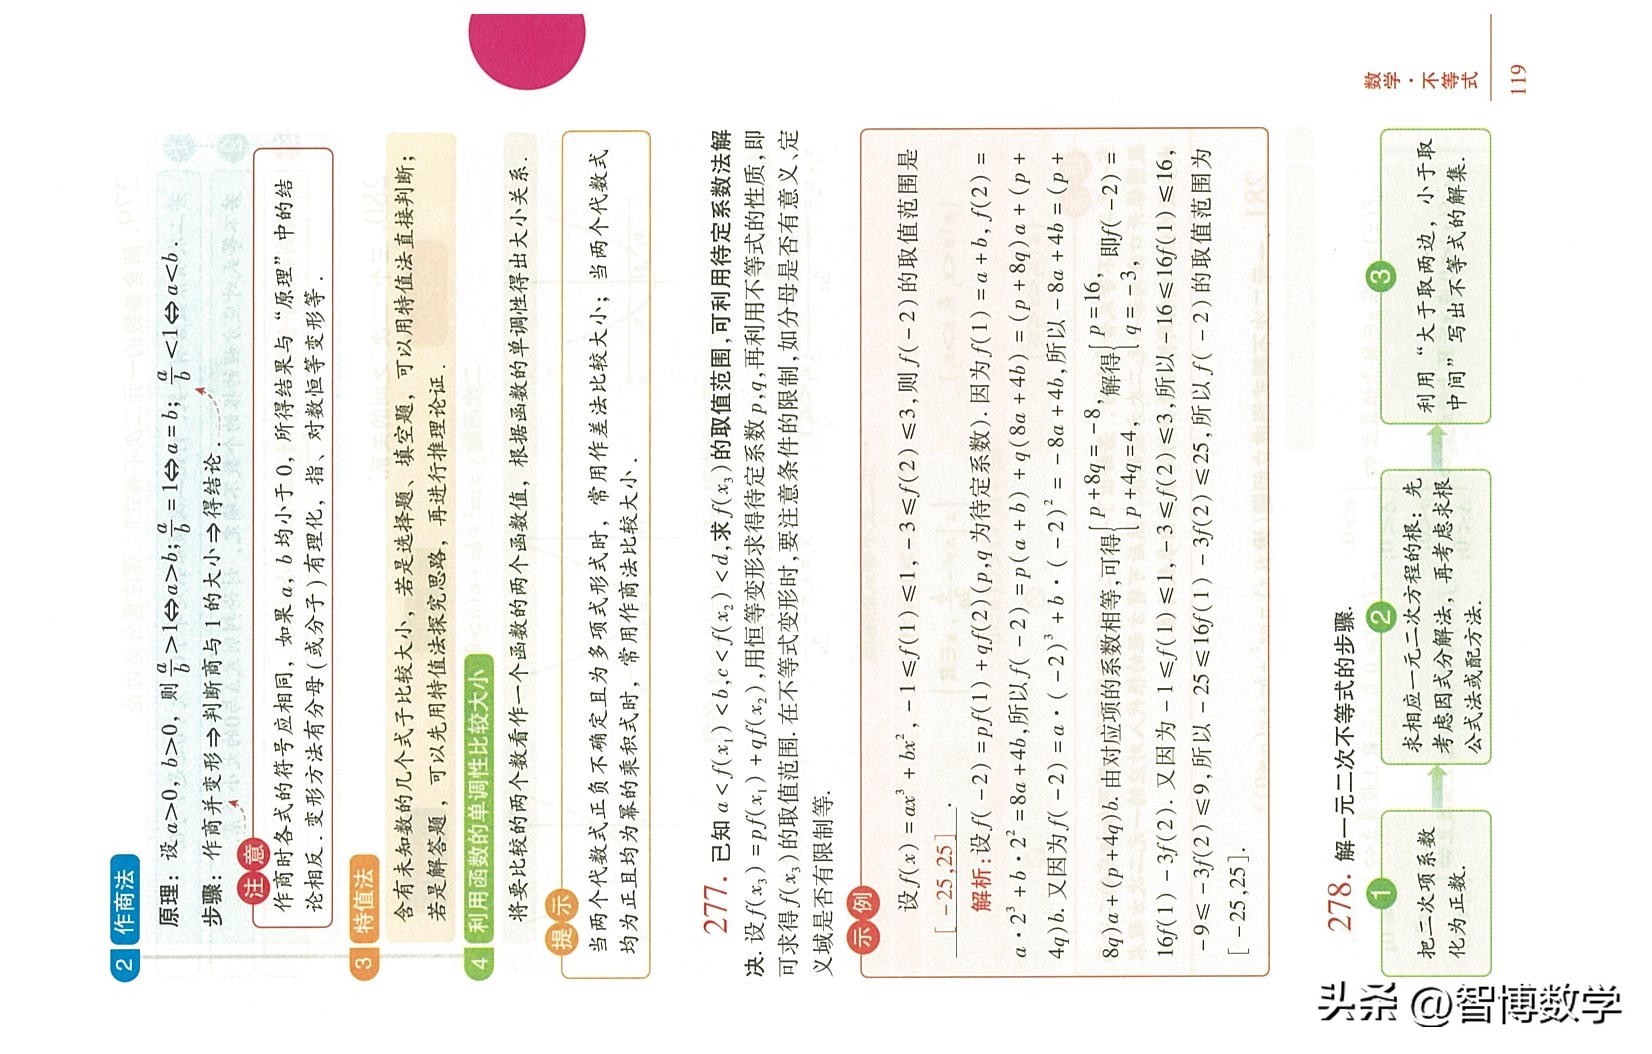 2 作商法
原理：设 a>0, b>0, 则 a/b >1⇔a>b; a/b =1⇔a=b; a/b <1⇔a<b.
步骤：作商并变形⇒判断商与 1 的大小⇒得结论.
注意
作商时各式的符号应相同，如果 a, b 均小于 0，所得结果与“原理”中的结
论相反. 变形方法有分母(或分子)有理化，指、对数恒等变形等.
3 特值法
含有未知数的几个式子比较大小，若是选择题、填空题，可以用特值法直接判断；
若是解答题，可以先用特值法探究思路，再进行推理论证.
4 利用函数的单调性比较大小
将要比较的两个数看作一个函数的两个函数值，根据函数的单调性得出大小关系.
提示
当两个代数式正负不确定且为多项式形式时，常用作差法比较大小；当两个代数式
均为正且均为幂的乘积式时，常用作商法比较大小.
277. 已知 a<f(x₁)<b,c<f(x₂)<d,求 f(x₃)的取值范围,可利用待定系数法解
决. 设 f(x₃)=pf(x₁)+qf(x₂),用恒等变形求得待定系数 p,q,再利用不等式的性质,即
可求得 f(x₃)的取值范围. 在不等式变形时,要注意条件的限制,如分母是否有意义、定
义域是否有限制等.
示例
设 f(x)=ax³+bx²，-1≤f(1)≤1，-3≤f(2)≤3,则 f(-2)的取值范围是
[-25,25].
解析：设 f(-2)=pf(1)+qf(2)(p,q 为待定系数). 因为 f(1)=a+b,f(2)=
a·2³+b·2²=8a+4b,所以 f(-2)=p(a+b)+q(8a+4b)=(p+8q)a+(p+
4q)b. 又因为 f(-2)=a·(-2)³+b·(-2)²=-8a+4b,所以-8a+4b=(p+
8q)a+(p+4q)b. 由对应项的系数相等,可得{p+8q=-8, p+4q=4, 解得{p=16, q=-3, 即f(-2)=
16f(1)-3f(2). 又因为-1≤f(1)≤1,-3≤f(2)≤3,所以-16≤16f(1)≤16,
-9≤-3f(2)≤9,所以-25≤16f(1)-3f(2)≤25,所以 f(-2)的取值范围为
[-25,25].
278. 解一元二次不等式的步骤.
1
把二次项系数
化为正数.
2
求相应一元二次方程的根：先
考虑因式分解法，再考虑求根
公式法或配方法.
3
利用“大于取两边，小于取
中间”写出不等式的解集.
数学·不等式
119
头条 @智博数学